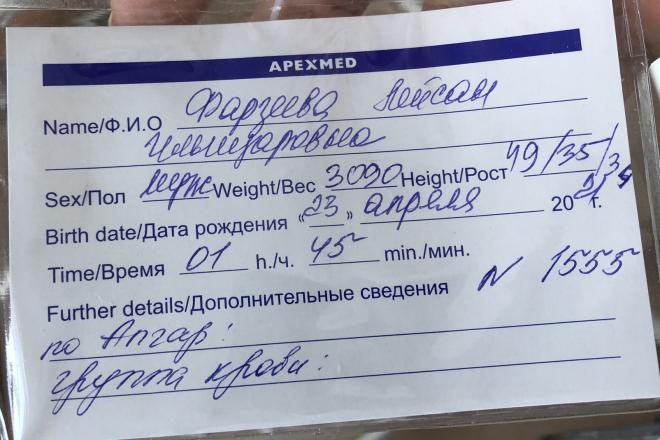 APEXMED
Name/Ф.И.О Фарзеева Лейсан
Ильгизаровна
Sex/Пол муж Weight/Вес 3090 Height/Рост 49/35/34
Birth date/Дата рождения «23» апреля 2021г.
Time/Время 01 h./ч. 45 min./мин.
Further details/Дополнительные сведения N 1555
по Апгар:
группа крови: